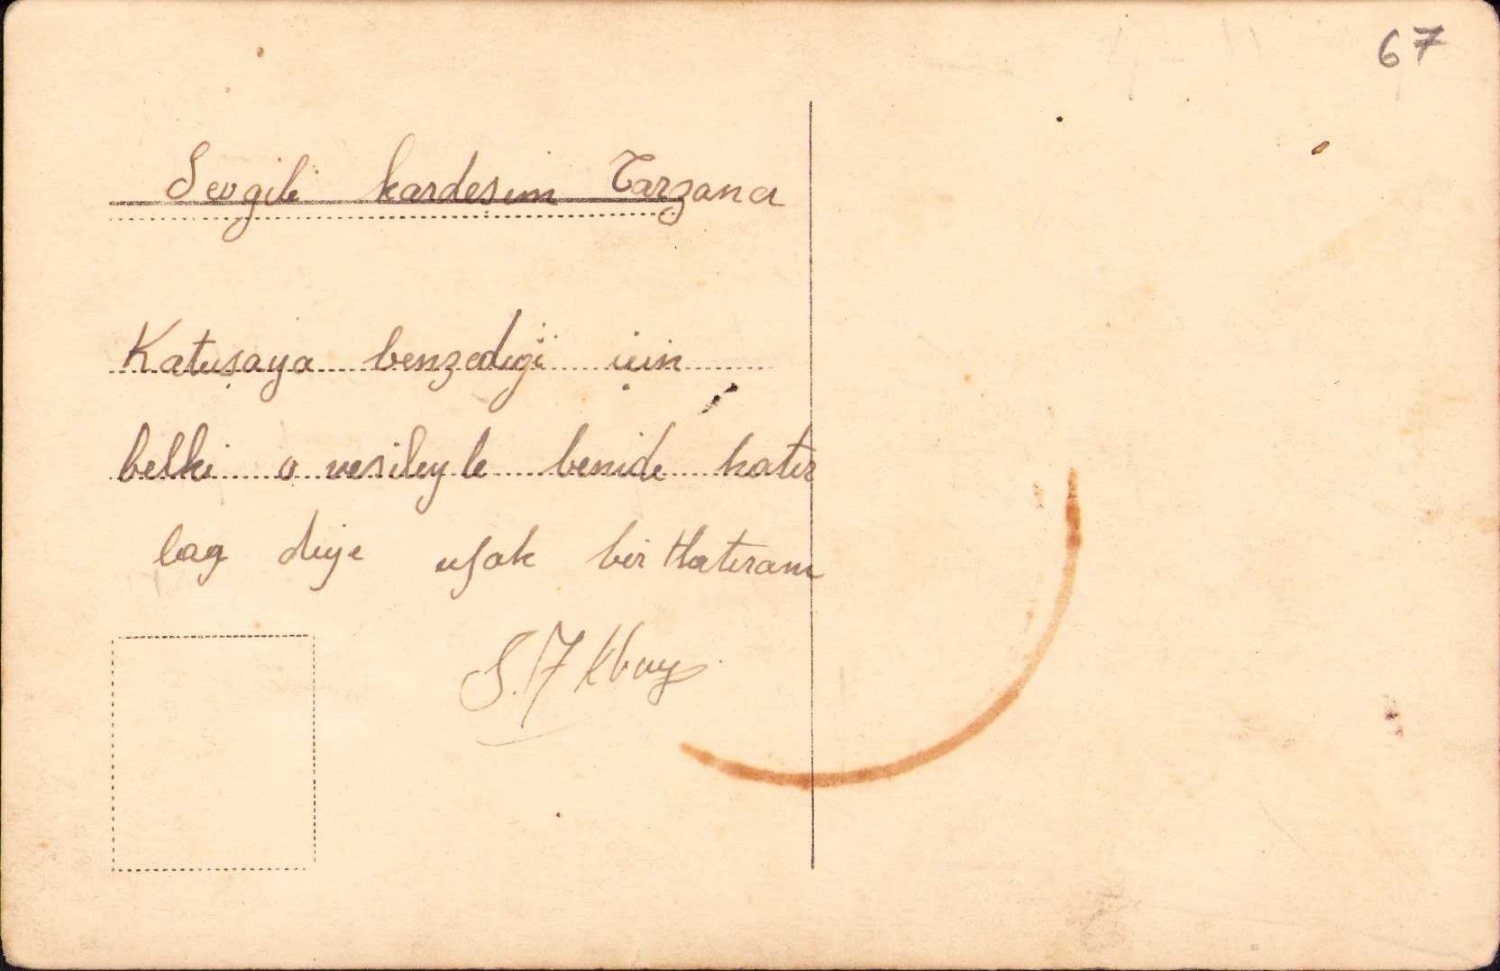 67
Sevgili kardeşim Tarzana
Katuşaya benzediği için
belki o vesileyle benide hatır
lag diye ufak bir Hatıram
S. Akbay